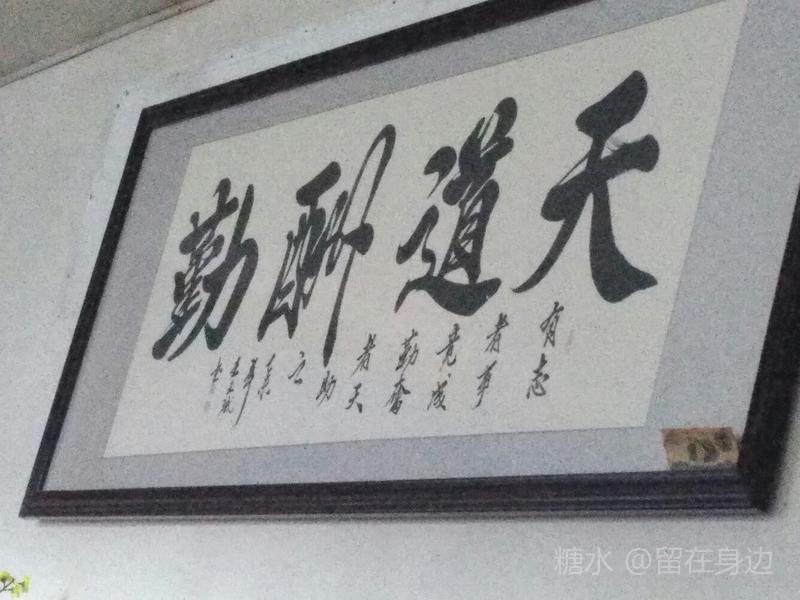 天道酬勤
有志
者事
竟成
勤奮
者天
助
之
糖水 @留在身边